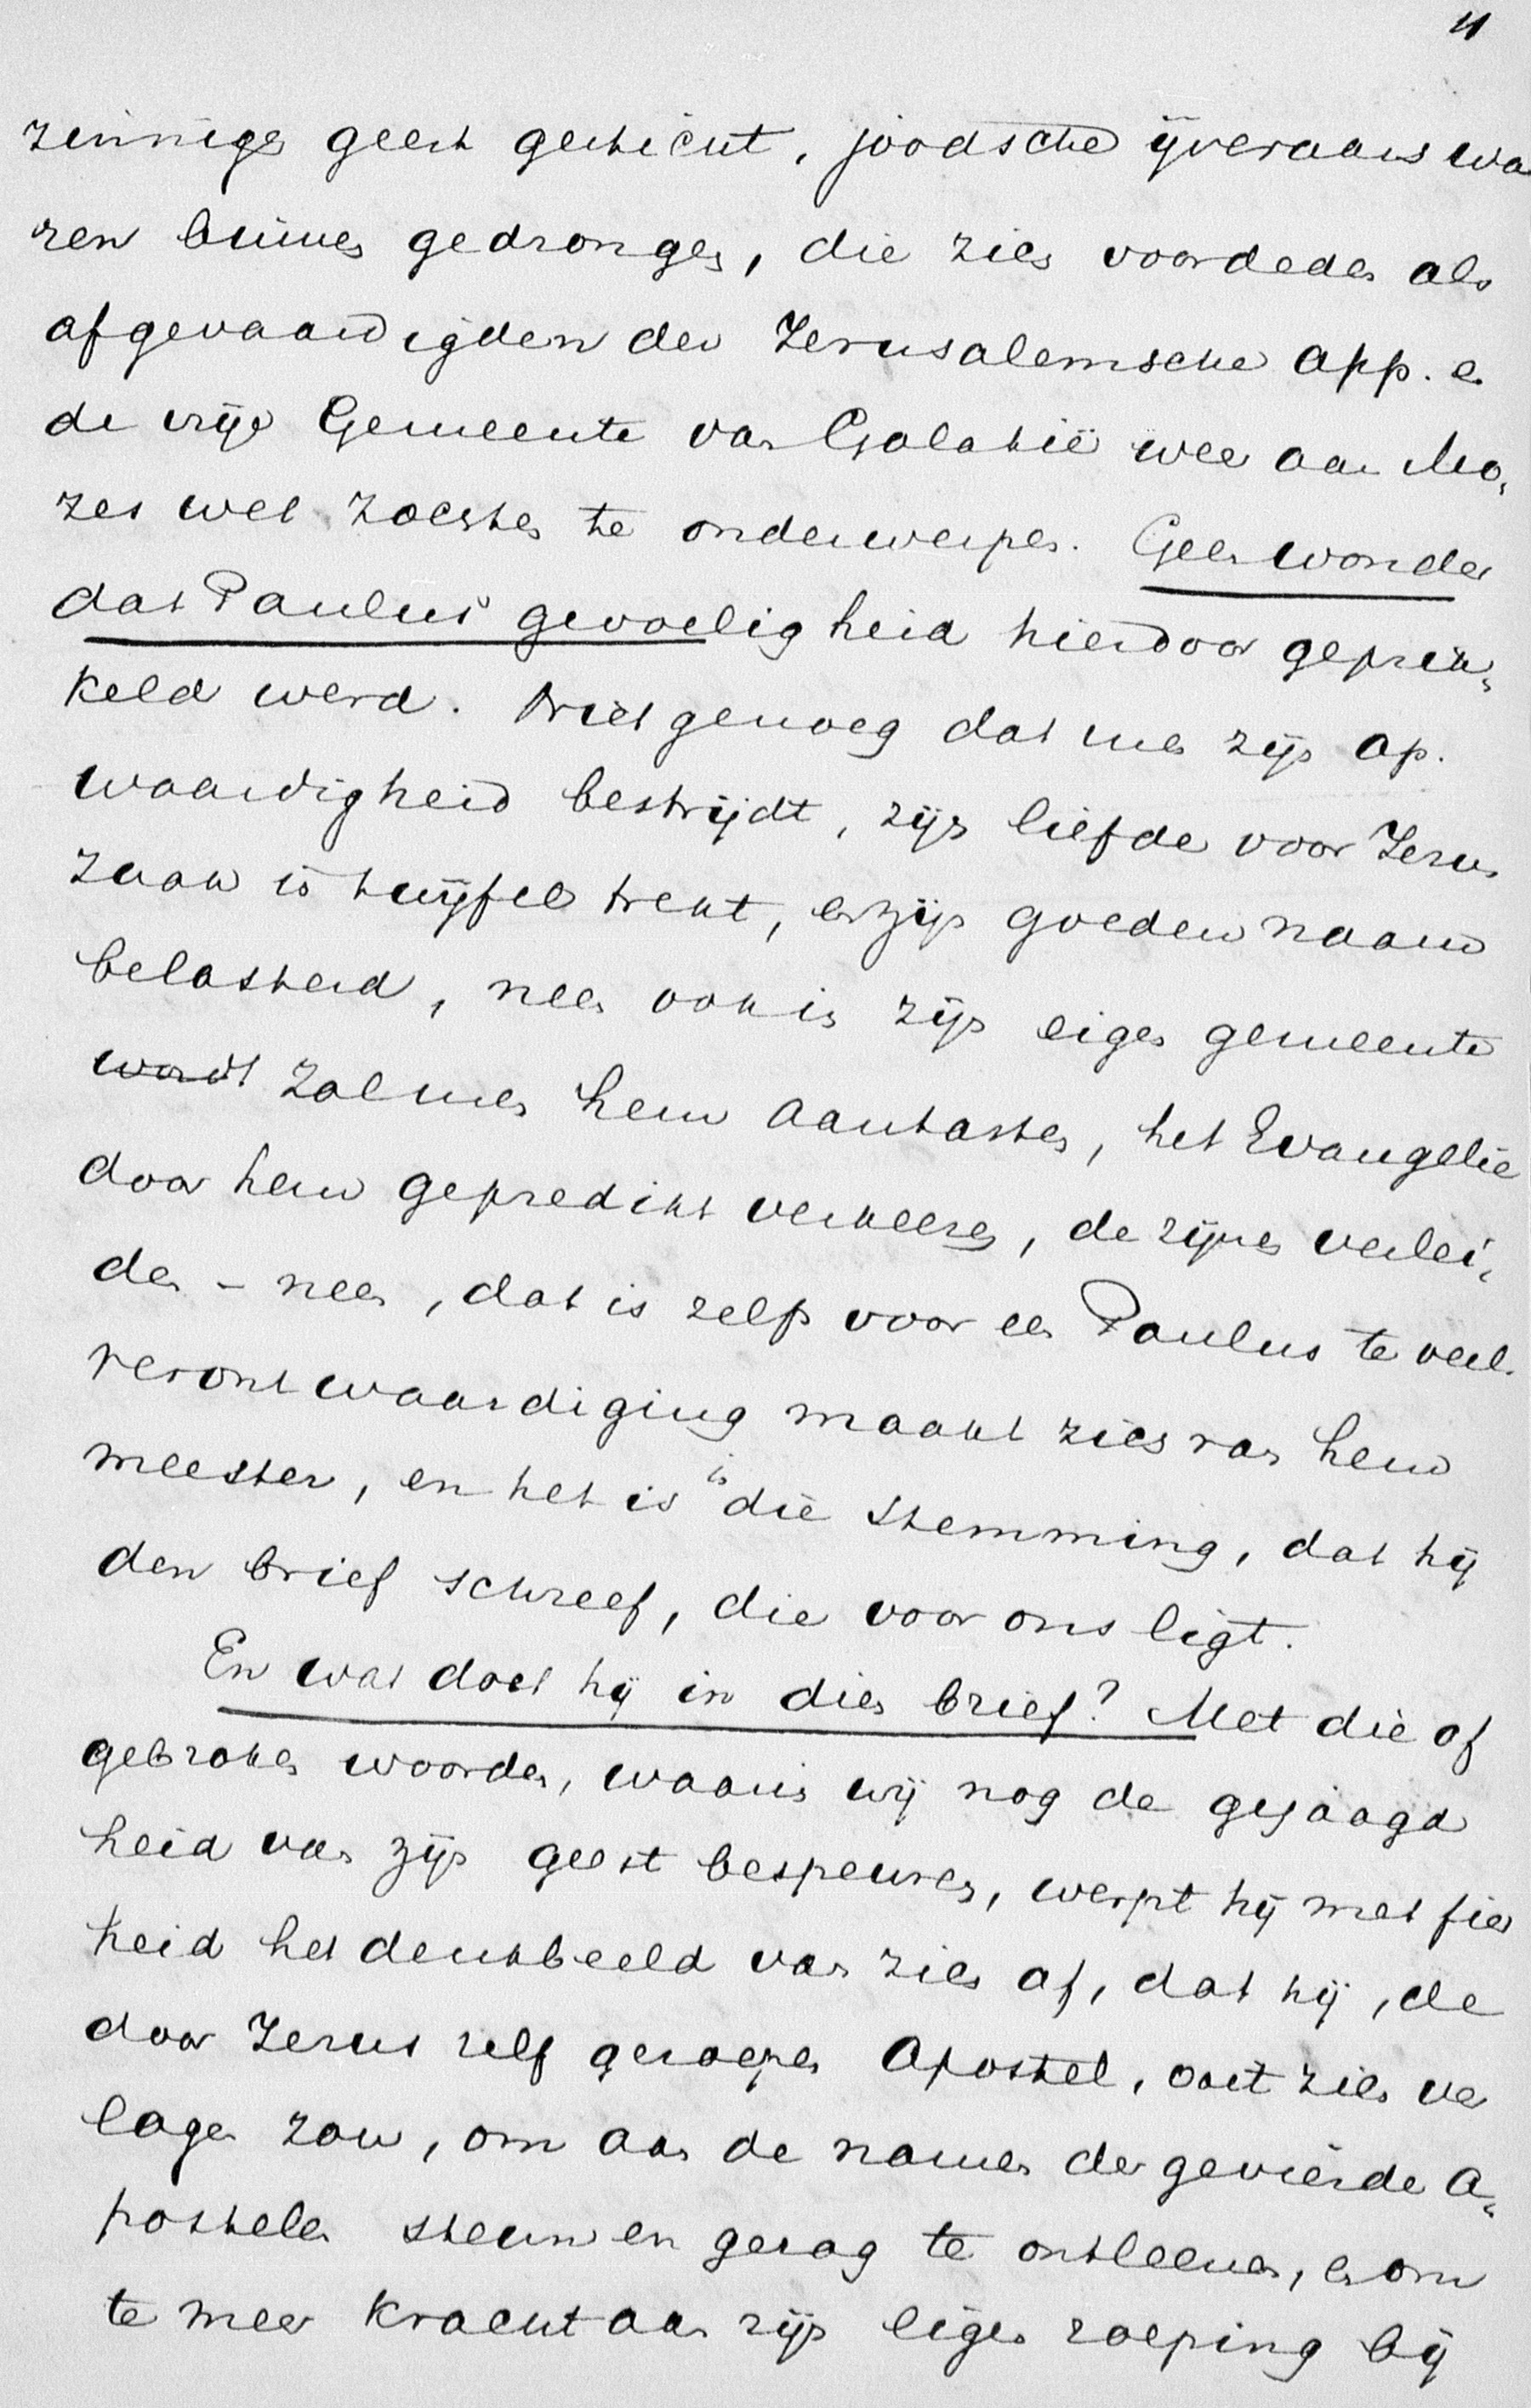 11
zinnige geest gesticht, joodsche ijveraars wa
ren binnen gedrongen, die zich voordeden als
afgevaardigden der Jerusalemsche App. en
de vrije Gemeente van Galatië weer aan Mo„
zes wet zochten te onderwerpen. Geen wonder
dat Paulus gevoeligheid hierdoor geprik„
keld werd. Niet genoeg dat men zijn Ap.
waardigheid bestrijdt, zijn liefde voor Jezus
zaak in twijfel trekt, en zijn goeden naam
belasterd, neen ook in zijn eigen gemeente
wordt zal men hem aantasten, het Evangelie
door hem gepredikt verkeeren, de zijnen verlei„
den – neen, dat is zelfs voor een Paulus te veel.
verontwaardiging maakt zich van hem
meester, en het is in die stemming, dat hij
den brief schreef, die voor ons ligt.
En wat doet hij in dien brief? Met die af
gebroken woorden, waarin wij nog de gejaagd
heid van zijn geest bespeuren, werpt hij met fier
heid het denkbeeld van zich af, dat hij, de
door Jezus zelf geroepen Apostel, ooit zich ver
lagen zou, om aan de namen der gevierde A„
postelen steun en gezag te ontleenen, en om
te meer kracht aan zijn eigen roeping bij